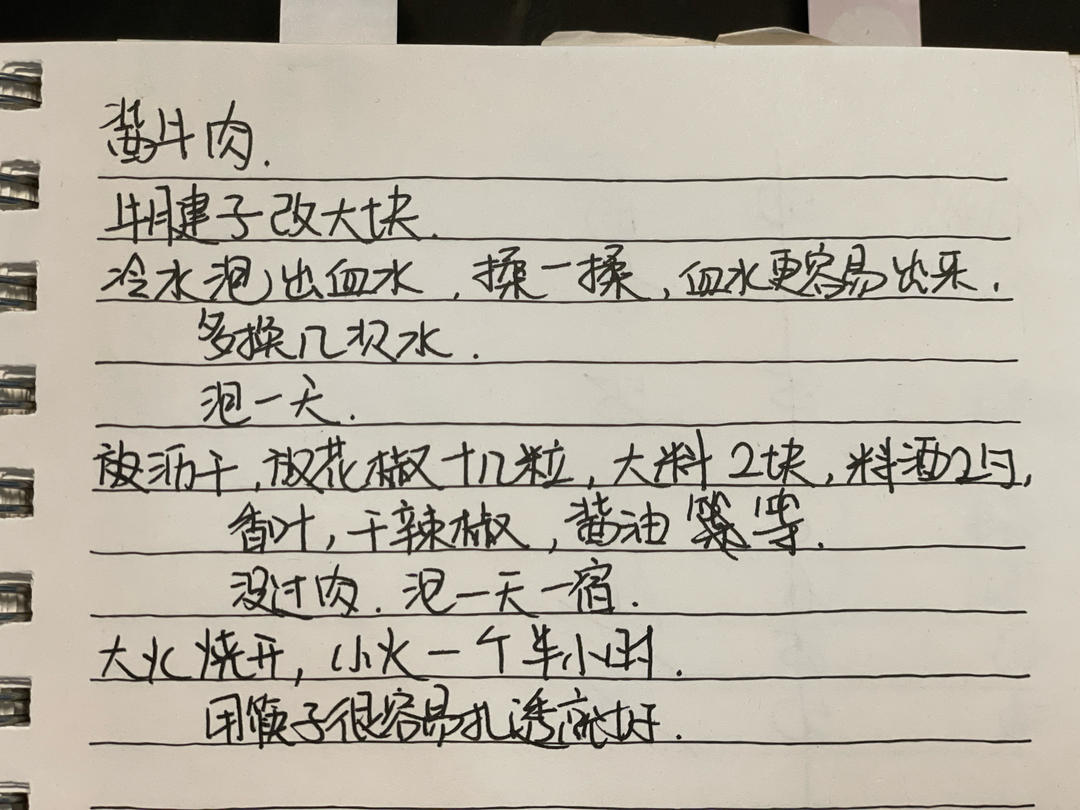 酱牛肉.
牛腱子改大块.
冷水泡出血水,揉一揉,血水更容易出来.
多换几次水.
泡一天.
放沥干,放花椒十几粒,大料2块,料酒2勺,
香叶,干辣椒,酱油 等.
没过肉.泡一天一宿.
大火烧开,小火一个半小时.
用筷子很容易扎透就好.